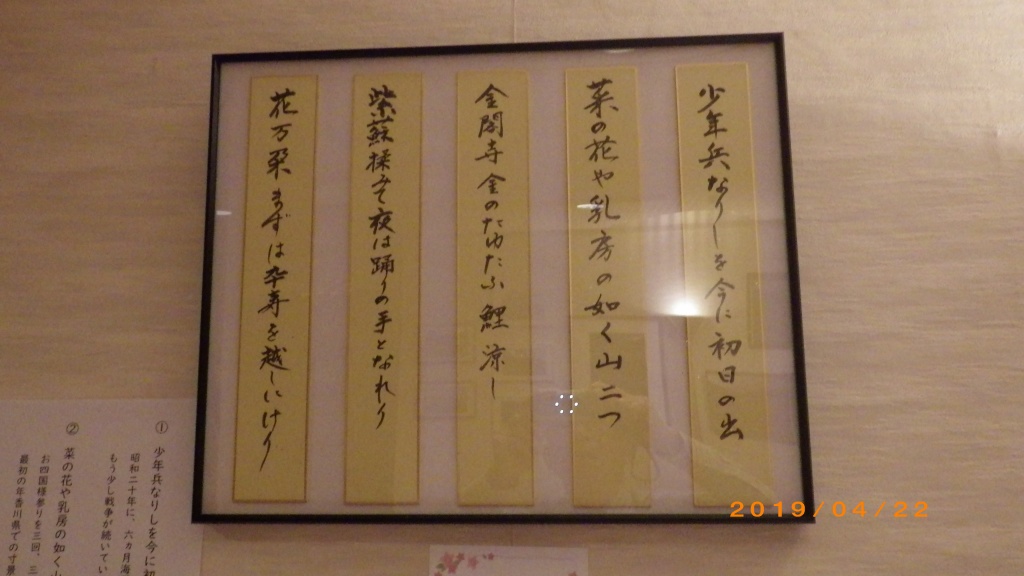 少年兵なりしを今に初日の出
菜の花や乳房の如く山二つ
金閣寺金のたゆたふ鯉涼し
紫蘇揉みて夜は踊りの手となれり
花万朶まずは卒寿を越しにけり
① 少年兵なりしを今に初
昭和二十年に、六ヵ月海
もう少し戦争が続いてい
② 菜の花や乳房の如く山
お四国様参りを三回、三
最初の年香川県での寸景
2019/04/22